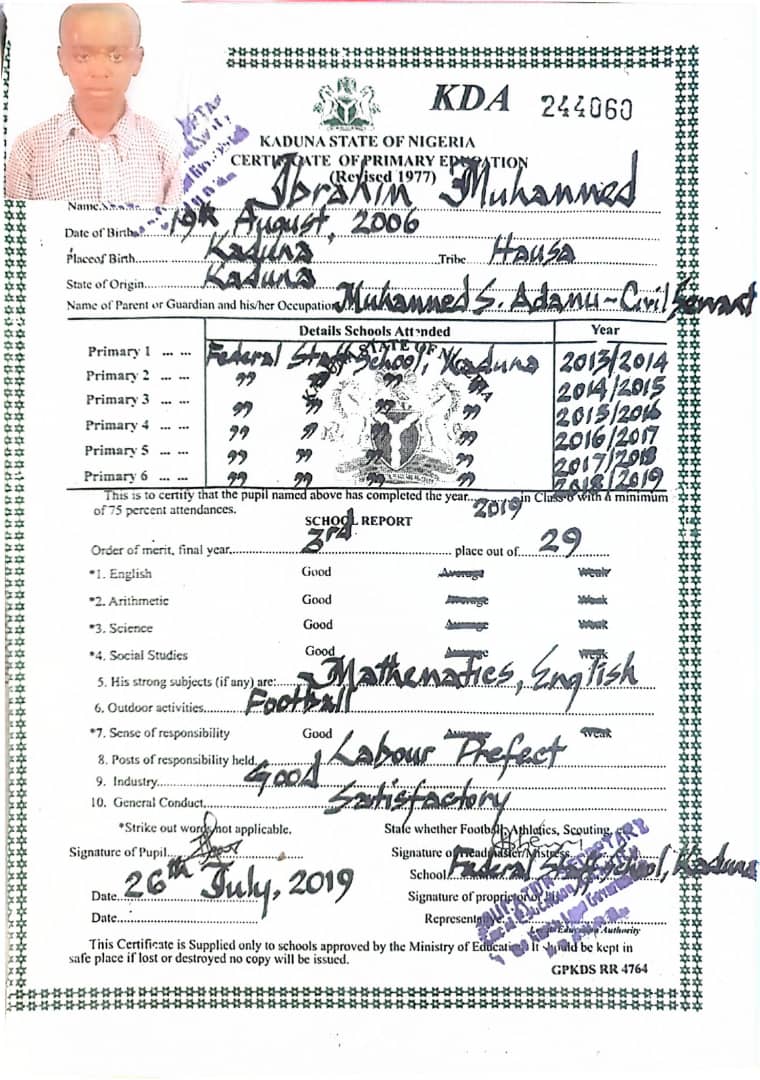 KDA 244060
KADUNA STATE OF NIGERIA
CERTIFICATE OF PRIMARY EDUCATION
(Revised 1977)
Name Ibrahim Muhammed
Date of Birth 19th August, 2006
Placeof Birth Kaduna Tribe Hausa
State of Origin Kaduna
Name of Parent or Guardian and his/her Occupation Muhammed S. Adamu - Civil Servant
Details Schools Attended Year
Primary 1 ... ... Federal Staff School, Kaduna 2013/2014
Primary 2 ... ... " " " " 2014/2015
Primary 3 ... ... " " " " 2015/2016
Primary 4 ... ... " " " " 2016/2017
Primary 5 ... ... " " " " 2017/2018
Primary 6 ... ... " " " " 2018/2019
This is to certify that the pupil named above has completed the year 2019 in Class 6 with a minimum
of 75 percent attendances.
SCHOOL REPORT
Order of merit, final year 3rd place out of 29
*1. English Good Average Weak
*2. Arithmetic Good Average Weak
*3. Science Good Average Weak
*4. Social Studies Good Average Weak
5. His strong subjects (if any) are: Mathematics, English
6. Outdoor activities Football
*7. Sense of responsibility Good Average Weak
8. Posts of responsibility held Labour Prefect
9. Industry Good
10. General Conduct Satisfactory
*Strike out words not applicable. State whether Football, Athletics, Scouting,
Signature of Pupil Signature of Headmaster/Mistress
School Federal Staff School, Kaduna
Date 26th July, 2019 Signature of proprietor
Date Representative
Local Education Authority
This Certificate is Supplied only to schools approved by the Ministry of Education It should be kept in
safe place if lost or destroyed no copy will be issued.
GPKDS RR 4764